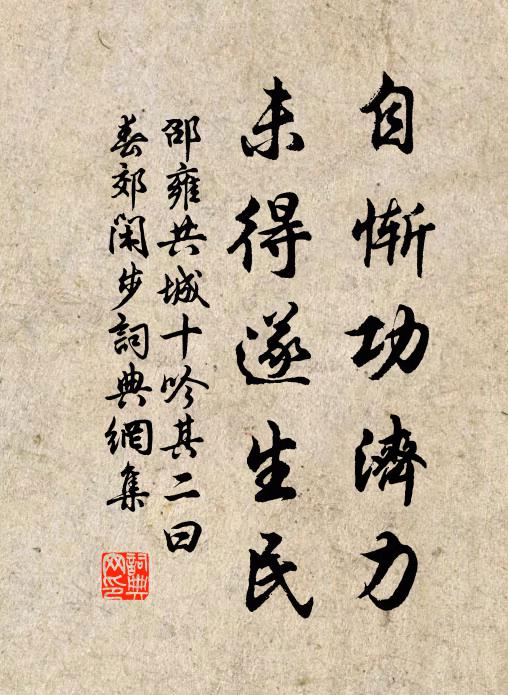 自慚功濟力
未得遂生民
邵雍共城十吟其二曰
春郊閑步詞典網集
詞典網印